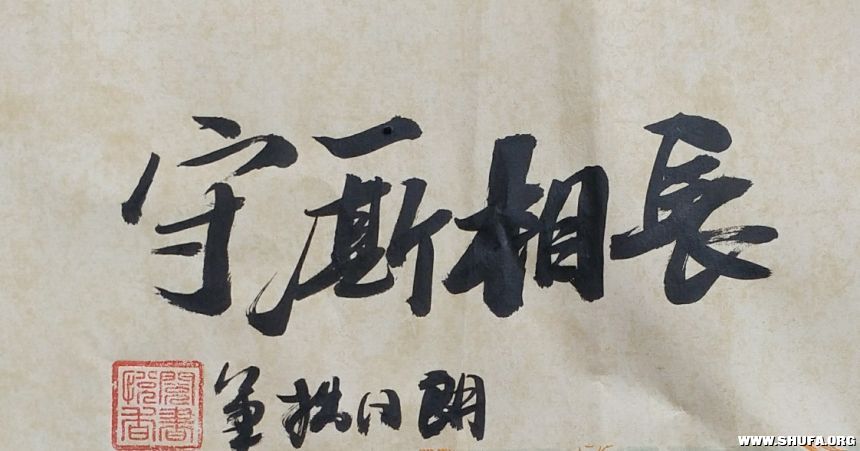 長相厮守
朗日拙筆
WWW.SHUFA.ORG